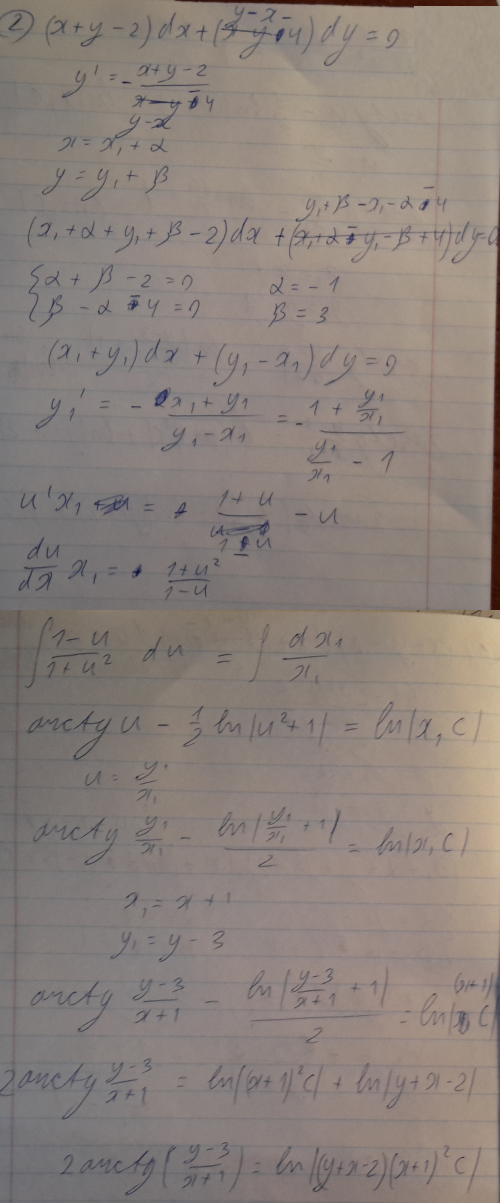 2) (x+y-2)dx+(y-x-4)dy=0
y' = - \frac{x+y-2}{y-x-4}
x = x₁ + α
y = y₁ + β
y₁+β-x₁-α-4
(x₁+α+y₁+β-2)dx + (x₁+α-y₁-β+4)dy=0
{α + β - 2 = 0 α = -1
{β - α - 4 = 0 β = 3
(x₁+y₁)dx + (y₁-x₁)dy=0
y₁' = - \frac{x₁+y₁}{y₁-x₁} = - \frac{1+\frac{y₁}{x₁}}{\frac{y₁}{x₁}-1}
u'x₁ = \frac{1+u}{1-u} - u
\frac{du}{dx} x₁ = \frac{1+u²}{1-u}
∫\frac{1-u}{1+u²} du = ∫\frac{dx₁}{x₁}
arctg u - \frac{1}{2} ln|u²+1| = ln|x₁C|
u = \frac{y₁}{x₁}
arctg \frac{y₁}{x₁} - \frac{ln|\frac{y₁}{x₁}+1|}{2} = ln|x₁C|
x₁ = x+1
y₁ = y-3
arctg \frac{y-3}{x+1} - \frac{ln|\frac{y-3}{x+1}+1|}{2} = ln|(x+1)C|
2arctg \frac{y-3}{x+1} = ln|(x+1)²C| + ln|y+x-2|
2arctg(\frac{y-3}{x+1}) = ln|(y+x-2)(x+1)²C|